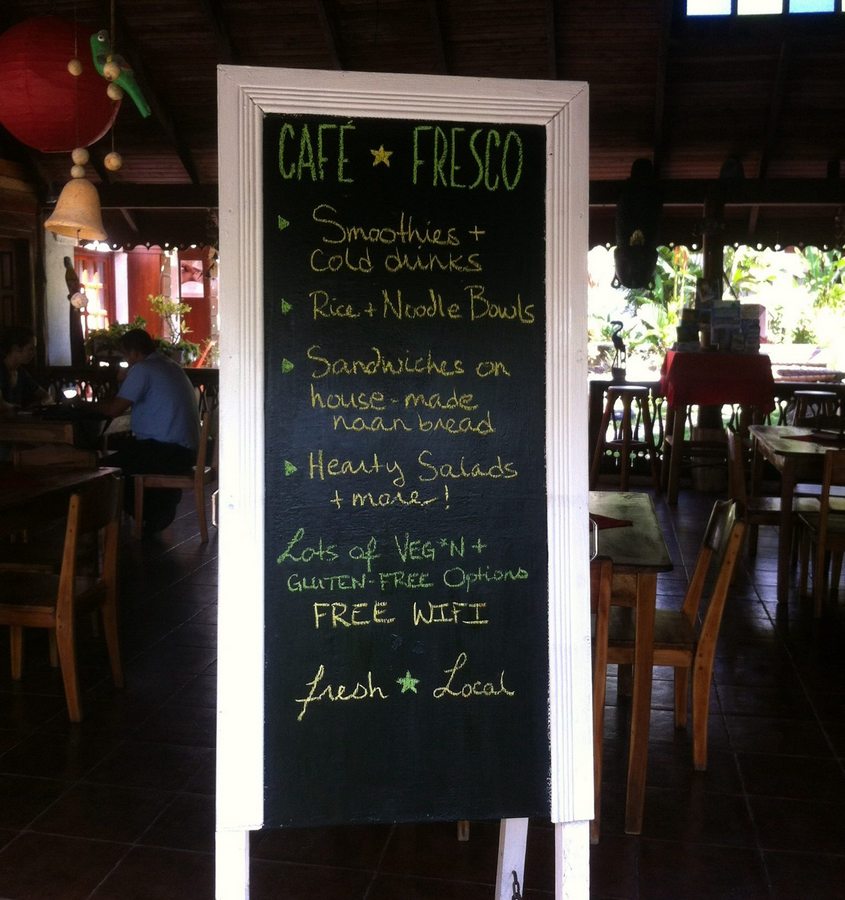 CAFÉ ★ FRESCO
▶ Smoothies +
cold drinks
▶ Rice + Noodle Bowls
▶ Sandwiches on
house-made
naan bread
▶ Hearty Salads
+ more!
Lots of VEG*N +
GLUTEN-FREE Options
FREE WIFI
fresh ★ Local